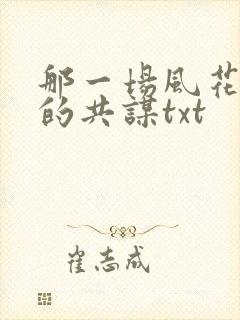 那一場風花
的共謀txt
崔志成